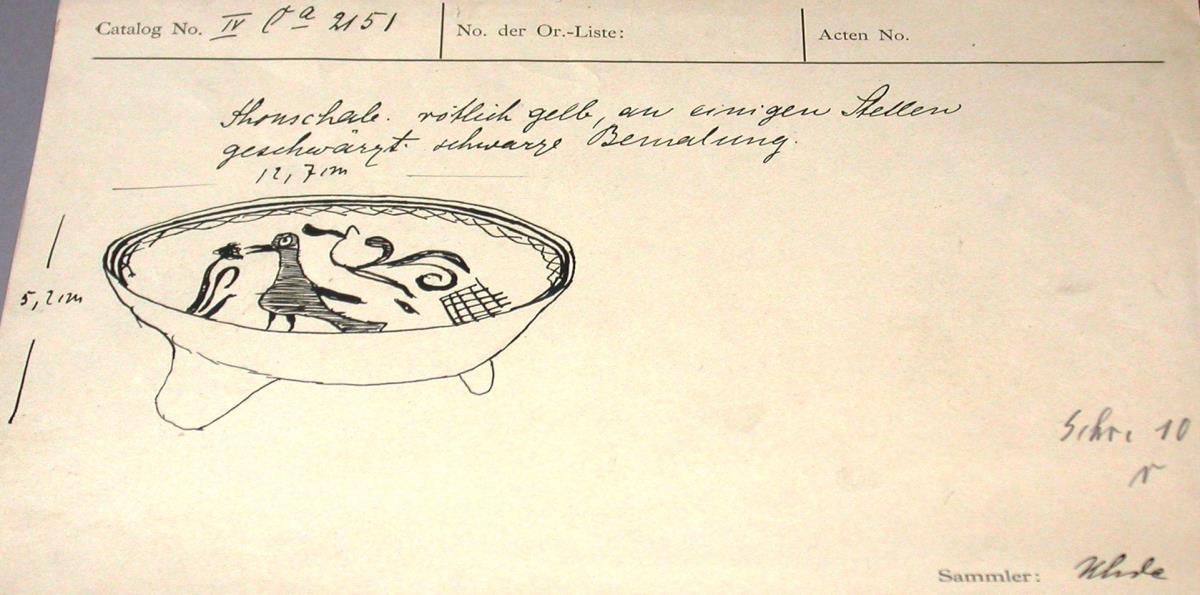 Catalog No. IV Ca 2151 No. der Or.-Liste: Acten No.
Thonschale. rötlich gelb, an einigen Stellen
geschwärzt. schwarze Bemalung.
12,7 cm
5,2 cm
Schr. 10
r
Sammler: Uhde